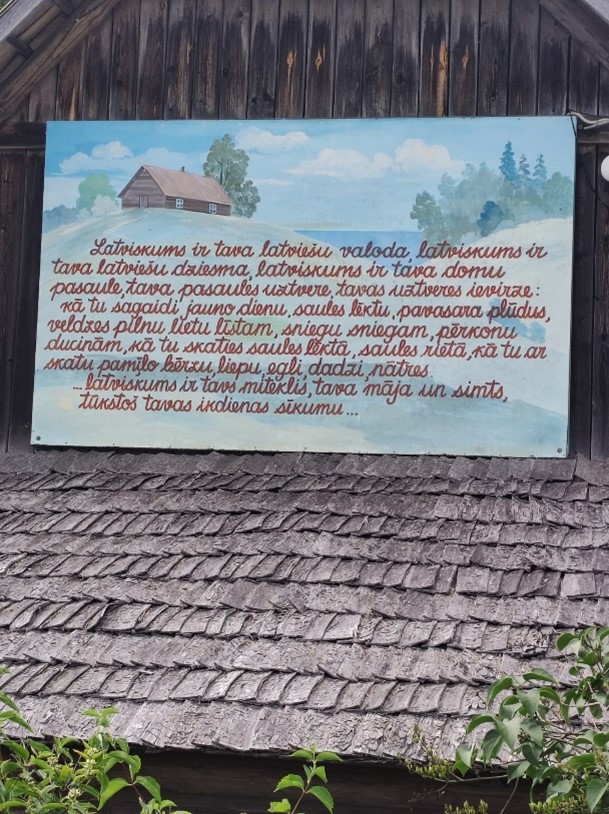 Latviskums ir tava latviešu valoda, latviskums ir
tava latviešu dziesma, latviskums ir tava domu
pasaule, tava pasaules uztvere, tavas uztveres ievirze:
kā tu sagaidi jauno dienu, saules lēktu, pavasara plūdus,
veldzes pilnu lietu līstam, sniegu sniegam, pērkonu
ducinām, kā tu skaties saules lēktā, saules rietā, kā tu ar
skatu pamīlo bērzu, liepu, egli, dadzi, nātres.
...latviskums ir tavs miteklis, tava māja un simts,
tūkstoš tavas ikdienas sīkumu...